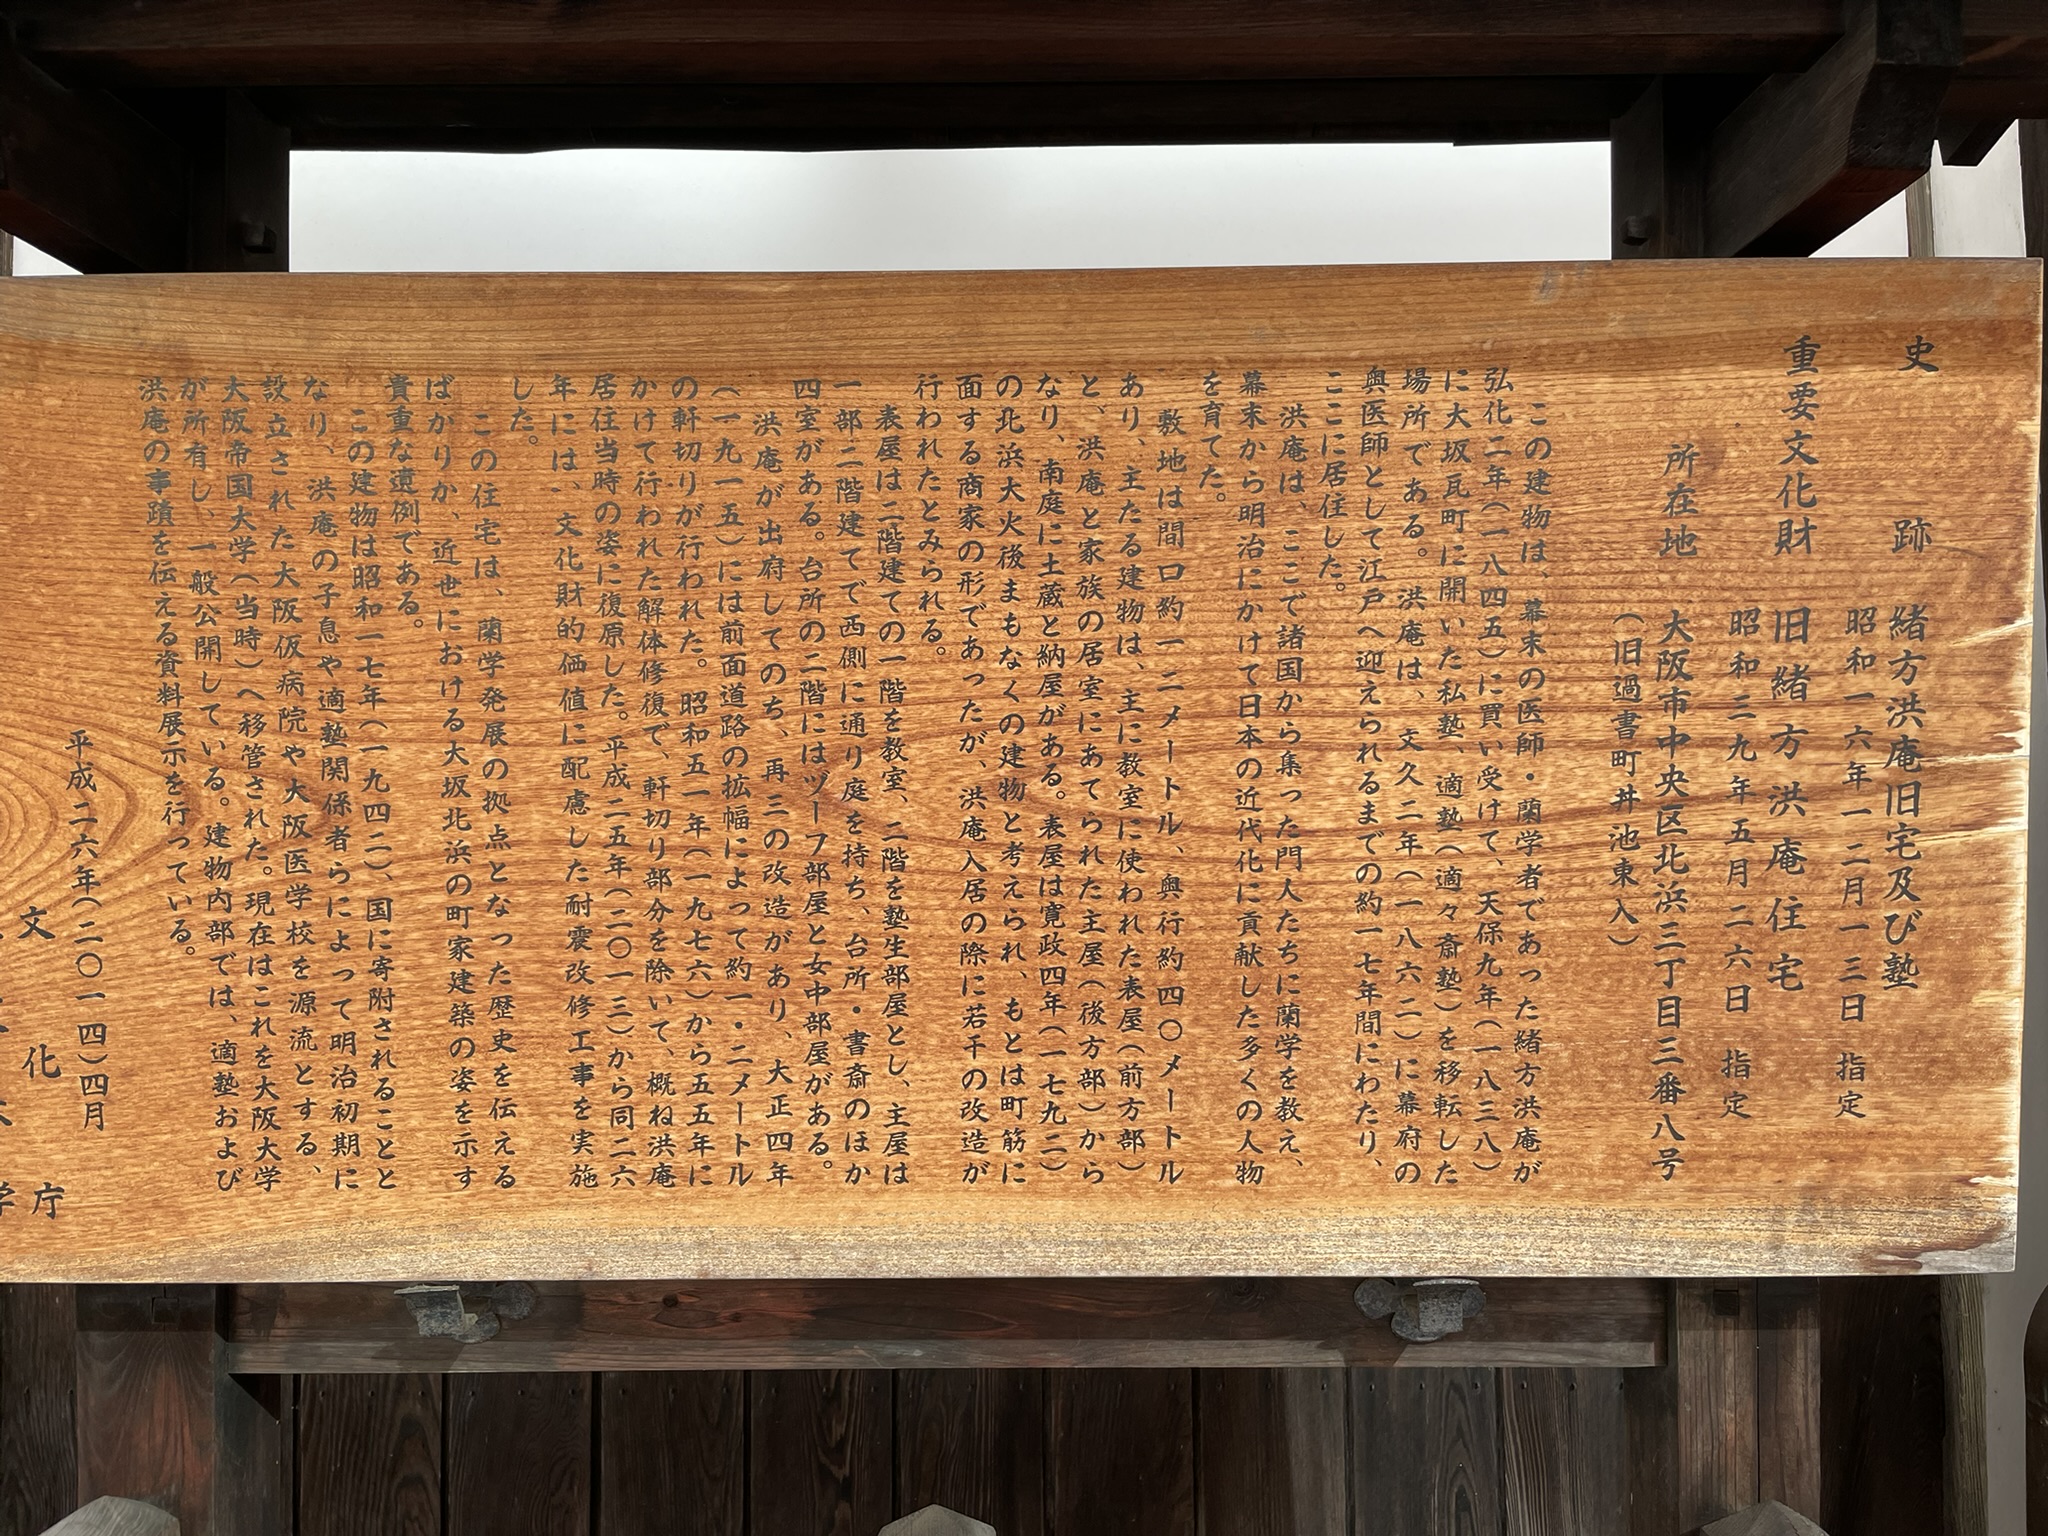 史跡 緒方洪庵旧宅及び塾
昭和一六年一二月一三日 指定
重要文化財 旧緒方洪庵住宅
昭和三九年五月二六日 指定
所在地 大阪市中央区北浜三丁目三番八号
（旧過書町丼池東入）
この建物は、幕末の医師・蘭学者であった緒方洪庵が
弘化二年（一八四五）に買い受けて、天保九年（一八三八）
に大坂瓦町に開いた私塾、適塾（適々斎塾）を移転した
場所である。洪庵は、文久二年（一八六二）に幕府の
奥医師として江戸へ迎えられるまでの約一七年間にわたり、
ここに居住した。
洪庵は、ここで諸国から集った門人たちに蘭学を教え、
幕末から明治にかけて日本の近代化に貢献した多くの人物
を育てた。
敷地は間口約一二メートル、奥行約四〇メートル
あり、主たる建物は、主に教室に使われた表屋（前方部）
と、洪庵と家族の居室にあてられた主屋（後方部）から
なり、南庭に土蔵と納屋がある。表屋は寛政四年（一七九二）
の北浜大火後まもなくの建物と考えられ、もとは町筋に
面する商家の形であったが、洪庵入居の際に若干の改造が
行われたとみられる。
表屋は二階建ての一階を教室、二階を塾生部屋とし、主屋は
一部二階建てで西側に通り庭を持ち、台所・書斎のほか
四室がある。台所の二階にはヅーフ部屋と女中部屋がある。
洪庵が出府してのち、再三の改造があり、大正四年
（一九一五）には前面道路の拡幅によって約一・二メートル
の軒切りが行われた。昭和五一年（一九七六）から五五年に
かけて行われた解体修復で、軒切り部分を除いて、概ね洪庵
居住当時の姿に復原した。平成二五年（二〇一三）から同二六
年には、文化財的価値に配慮した耐震改修工事を実施
した。
この住宅は、蘭学発展の拠点となった歴史を伝える
ばかりか、近世における大坂北浜の町家建築の姿を示す
貴重な遺例である。
この建物は昭和一七年（一九四二）、国に寄附されることと
なり、洪庵の子息や適塾関係者らによって明治初期に
設立された大阪仮病院や大阪医学校を源流とする、
大阪帝国大学（当時）へ移管された。現在はこれを大阪大学
が所有し、一般公開している。建物内部では、適塾および
洪庵の事蹟を伝える資料展示を行っている。
平成二六年（二〇一四）四月
文化庁